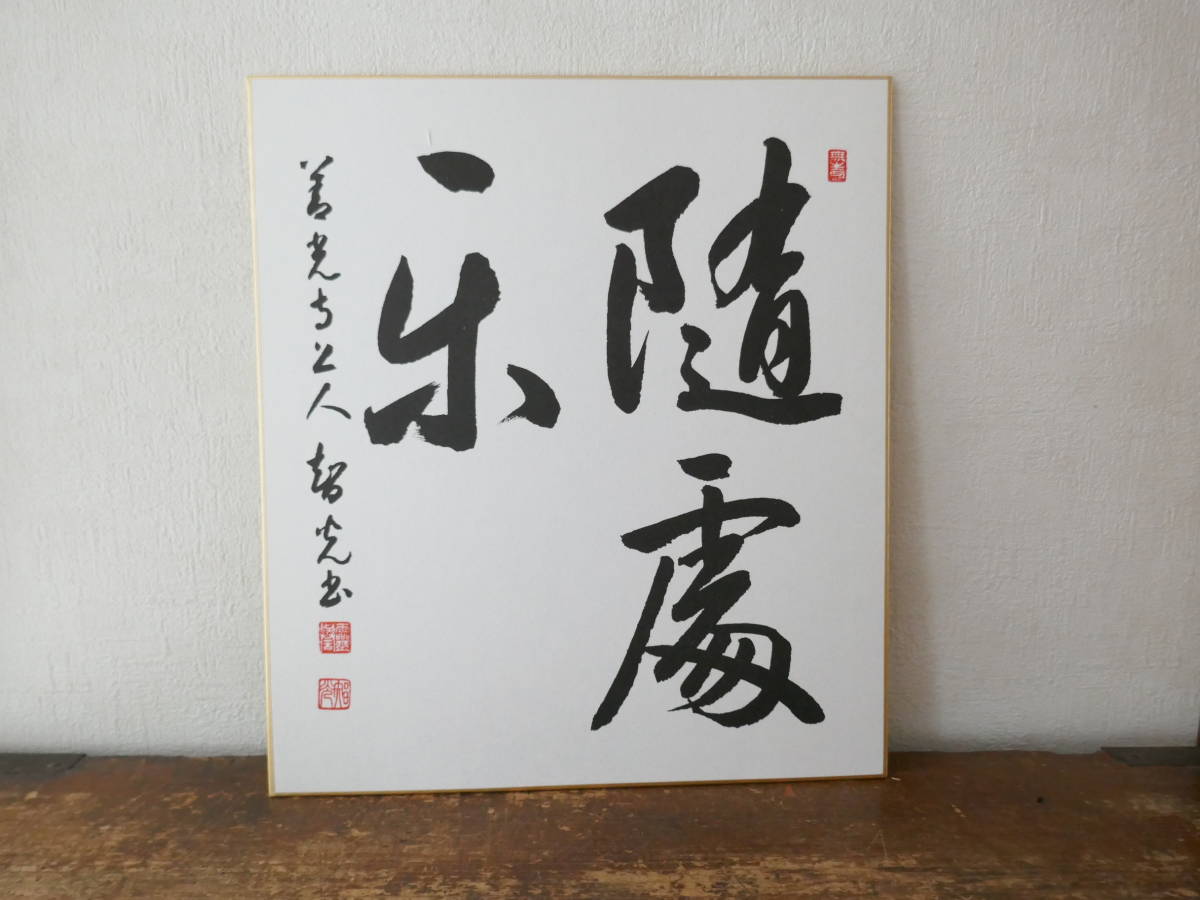 隨處
樂
善光寺上人 智光書